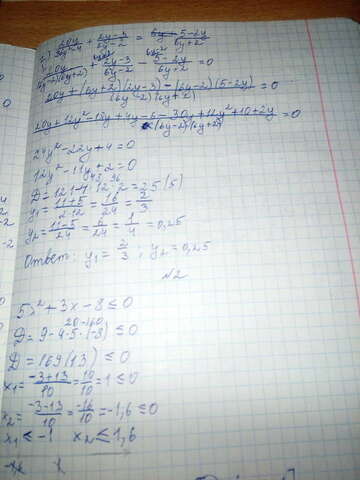 20y/36y²-4 + 2y-3/6y-2 = 5-2y/6y+2
20y/(6y-2)(6y+2) + 2y-3/6y-2 - 5-2y/6y+2 = 0
20y+(6y+2)(2y-3)-(6y-2)(5-2y)/(6y-2)(6y+2) = 0
20y+12y²-18y+4y-6-30y+12y²+10+2y/(6y-2)(6y+2) = 0
24y²-22y+4=0
12y²-11y+2=0
D=121-4·12·2=25(5)
y₁=11+5/2·12=16/24=2/3
y₂=11-5/24=6/24=1/4=0,25
Ответ: y₁=2/3; y₂=0,25
№2
5x²+3x-8≤0
D=9-4·5·(-8)≤0
D=169(13)≤0
x₁=-3+13/10=10/10=1≤0
x₂=-3-13/10=-16/10=-1,6≤0
x₁≤-1 x₂≤1,6